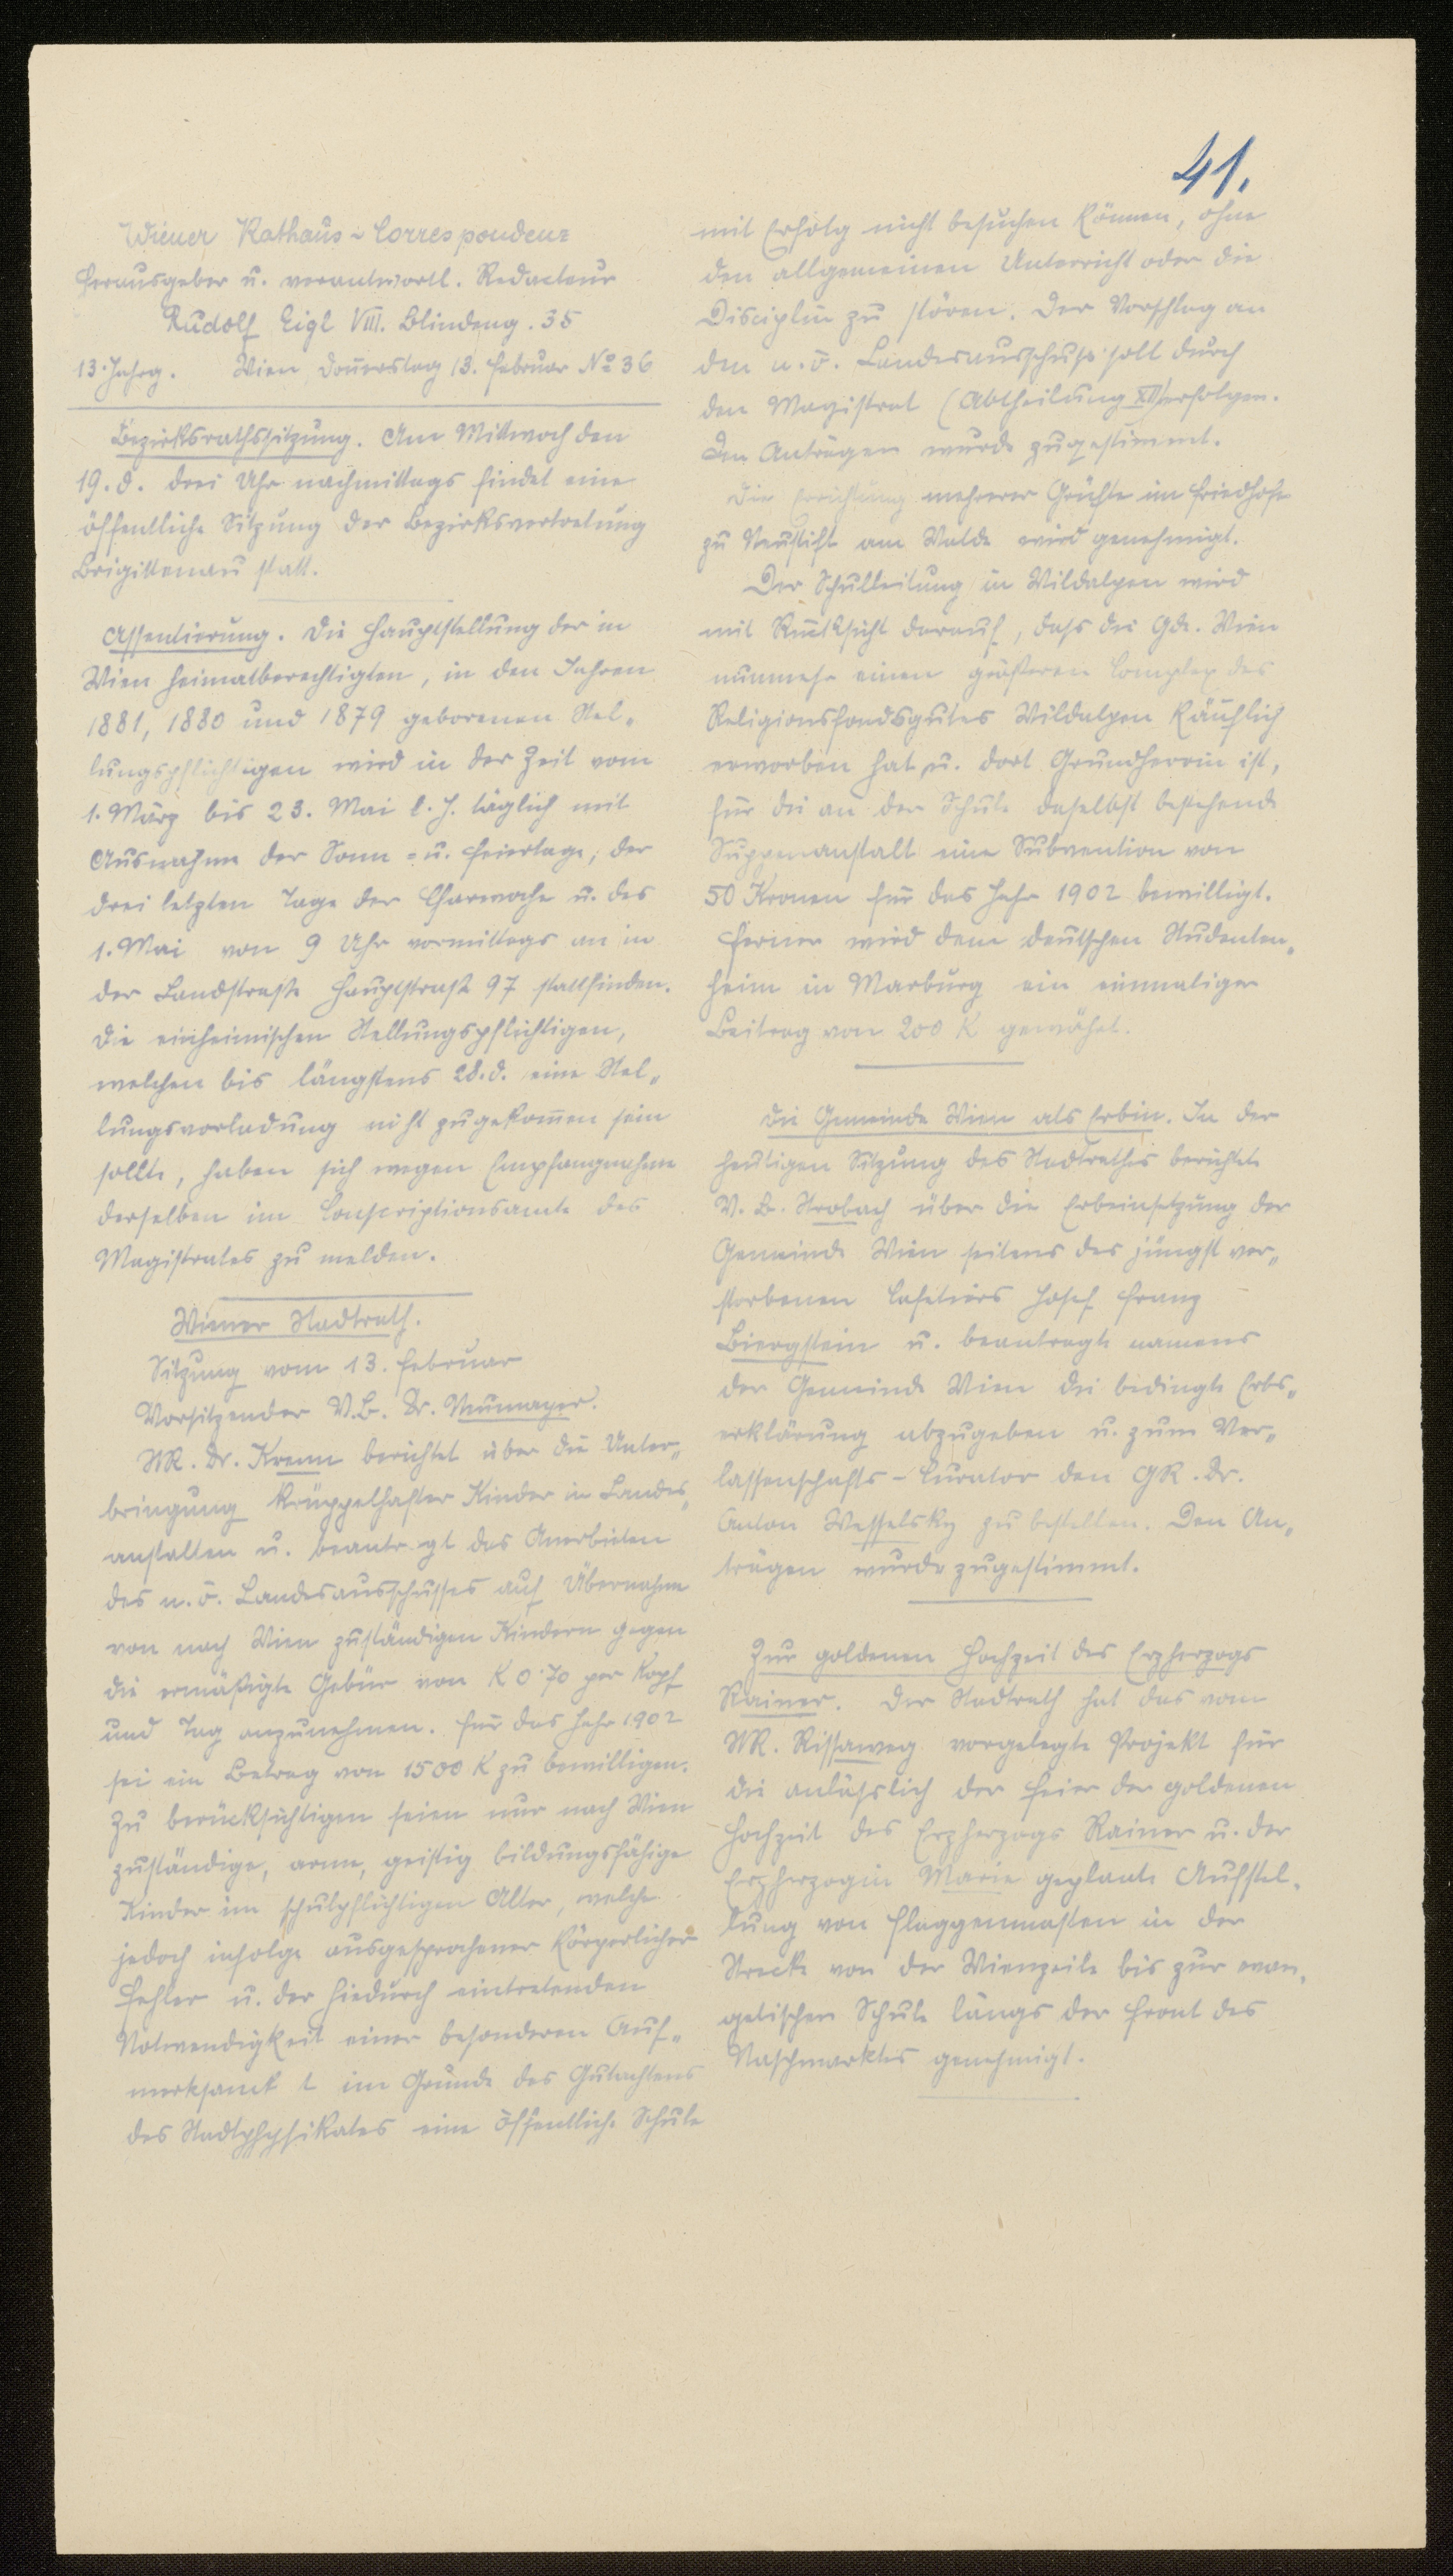 41.
Wiener Rathaus-Correspondenz
Herausgeber u. verantwortl. Redacteur
Rudolf Eigl VIII. Blindeng. 35
13. Jahrg. Wien, Donnerstag 13. Februar No 36
Bezirksrathssitzung. Am Mittwoch den
19. d. drei Uhr nachmittags findet eine
öffentliche Sitzung der Bezirksvertretung
Brigittenau statt.
Assentierung. Die Hauptstellung der in
Wien heimatberechtigten, in den Jahren
1881, 1880 und 1879 geborenen Stel„
lungspflichtigen wird in der Zeit vom
1. März bis 23. Mai l. J. täglich mit
Ausnahme der Sonn- u. Feiertage, der
drei letzten Tage der Charwoche u. des
1. Mai von 9 Uhr vormittags an in
der Landstraße Hauptstraße 97 stattfinden.
Die einheimischen Stellungspflichtigen,
welchen bis längstens 28. d. eine Stel„
lungsvorladung nicht zugekommen sein
sollte, haben sich wegen Empfangnahme
derselben im Conscriptionsamte des
Magistrates zu melden.
Wiener Stadtrath.
Sitzung vom 13. Februar
Vorsitzender V.B. Dr. Neumayer.
StR. Dr. Krenn berichtet über die Unter„
bringung krüppelhafter Kinder in Landes„
anstalten u. beantragt das Anerbieten
des n. ö. Landesausschusses auf Übernahme
von nach Wien zuständigen Kindern gegen
die ermäßigte Gebür von K 0·70 per Kopf
und Tag anzunehmen. Für das Jahr 1902
sei ein Betrag von 1500 K zu bewilligen.
Zu berücksichtigen seien nur nach Wien
zuständige, arme, geistig bildungsfähige
Kinder im schulpflichtigen Alter, welche
jedoch infolge ausgesprochener körperlicher
Fehler u. der hiedurch eintretenden
Notwendigkeit einer besonderen Auf„
merksamk t im Grunde des Gutachtens
des Stadtphysikates eine öffentliche Schule
mit Erfolg nicht besuchen können, ohne
den allgemeinen Unterricht oder die
Disciplin zu stören. Der Vorschlag an
den n. ö. Landesausschuß soll durch
den Magistrat (Abtheilung XII) erfolgen.
Den Anträgen wurde zugestimmt.
Die Errichtung mehrerer Grüfte im Friedhofe
zu Neustift am Walde wird genehmigt.
Der Schulleitung in Wildalpen wird
mit Rücksicht darauf, dass die Gde. Wien
nunmehr einen größeren Complex des
Religionsfondsgutes Wildalpen käuflich
erworben hat u. dort Grundherrin ist,
für die an der Schule daselbst bestehende
Suppenanstalt eine Subvention von
50 Kronen für das Jahr 1902 bewilligt.
Ferner wird dem deutschen Studenten„
heim in Marburg ein einmaliger
Beitrag von 200 K gewährt.
Die Gemeinde Wien als Erbin. In der
heutigen Sitzung des Stadtrathes berichtete
V. B. Strobach über die Erbeinsetzung der
Gemeinde Wien seitens des jüngst ver„
storbenen Cafetiers Josef Franz
Biergstein u. beantragte namens
der Gemeinde Wien die bedingte Erbs„
erklärung abzugeben u. zum Ver„
lassenschafts-Curator den GR. Dr.
Anton Wesselsky zu bestellen. Den An„
trägen wurde zugestimmt.
Zur goldenen Hochzeit des Erzherzogs
Rainer. Der Stadtrath hat das vom
StR. Rissaweg vorgelegte Projekt für
die anlässlich der Feier der goldenen
Hochzeit des Erzherzogs Rainer u. der
Erzherzogin Marie geplante Aufstel„
lung von Flaggenmasten in der
Strecke von der Wienzeile bis zur evan„
gelischen Schule längs der Front des
Naschmarktes genehmigt.